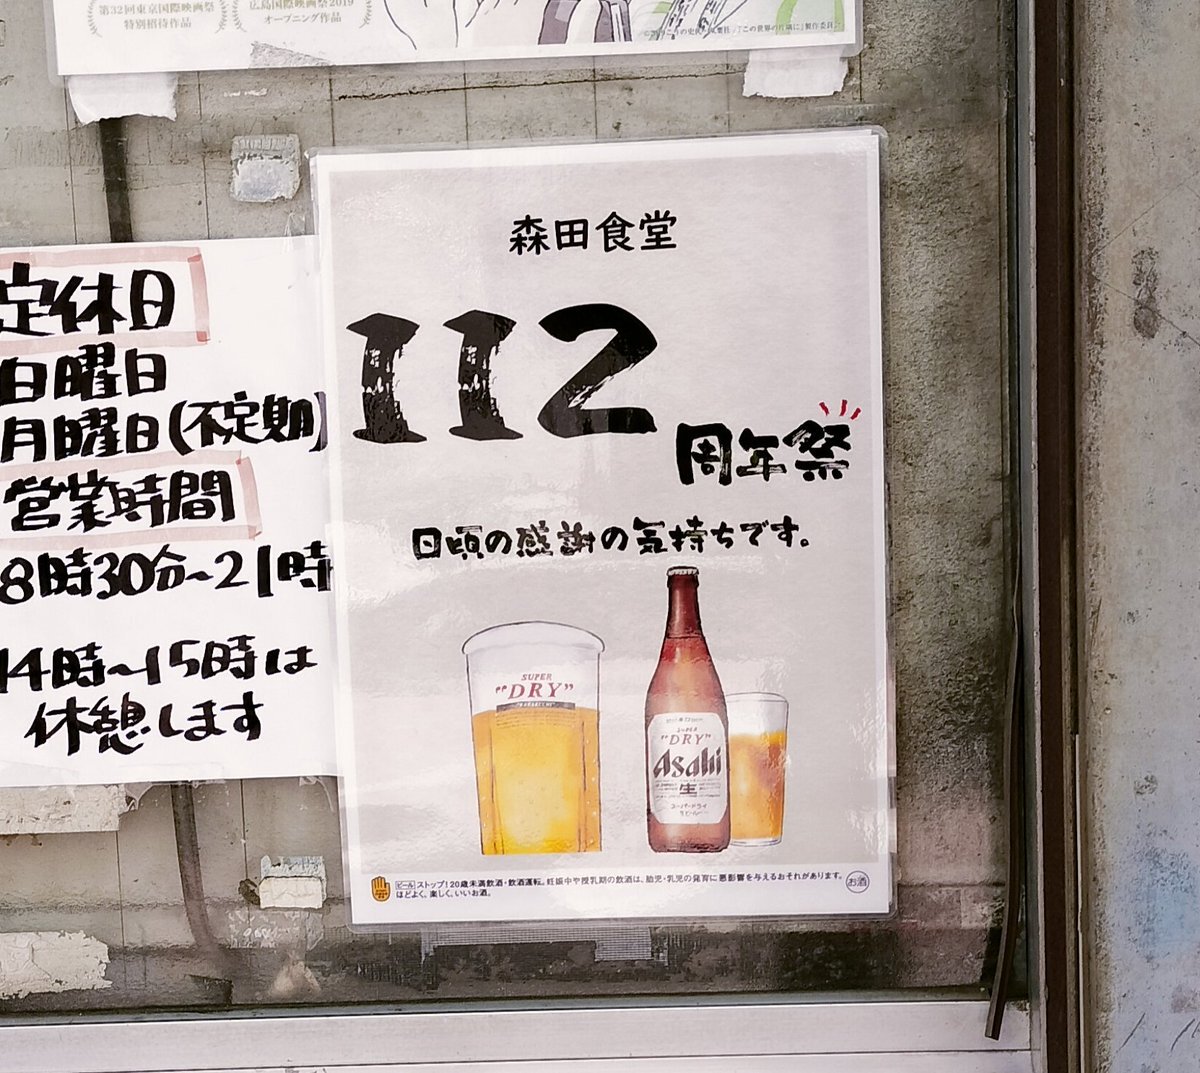 第32回東京国際映画祭
特別招待作品
広島国際映画祭2019
オープニング作品
定休日
日曜日
月曜日(不定期)
営業時間
8時30分~21時
14時~15時は
休憩します
森田食堂
112
周年祭
日頃の感謝の気持ちです。
SUPER
"DRY"
SUPER
"DRY"
Asahi
生
スーパードライ
生ビール
ビール ストップ!20歳未満飲酒・飲酒運転。妊娠中や授乳期の飲酒は、胎児・乳児の発育に悪影響を与えるおそれがあります。
ほどよく、楽しく、いいお酒。
お酒